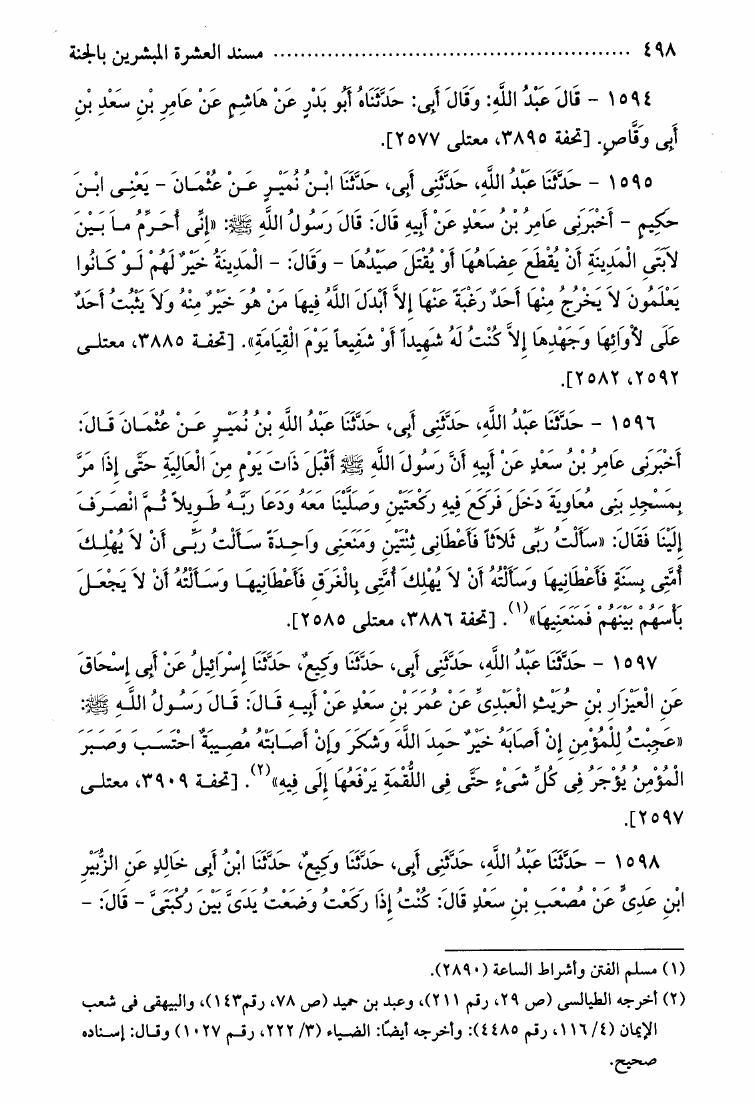 ٤٩٨ ........................................ مسند العشرة المبشرين بالجنة
١٥٩٤ - قَالَ عَبْدُ اللَّهِ: وَقَالَ أَبِى: حَدَّثَنَاهُ أَبُو بَدْرٍ عَنْ هَاشِمٍ عَنْ عَامِرِ بْنِ سَعْدِ بْنِ
أَبِى وَقَّاصٍ. [تحفة ٣٨٩٥، معتلى ٢٥٧٧].
١٥٩٥ - حَدَّثَنَا عَبْدُ اللَّهِ، حَدَّثَنِى أَبِى، حَدَّثَنَا ابْنُ نُمَيْرٍ عَنْ عُثْمَانَ - يَعْنِى ابْنَ
حَكِيمٍ - أَخْبَرَنِى عَامِرُ بْنُ سَعْدٍ عَنْ أَبِيهِ قَالَ: قَالَ رَسُولُ اللَّهِ ﷺ: «إِنِّى أُحَرِّمُ مَا بَيْنَ
لاَبَتَىِ الْمَدِينَةِ أَنْ يُقْطَعَ عِضَاهُهَا أَوْ يُقْتَلَ صَيْدُهَا - وَقَالَ: - الْمَدِينَةُ خَيْرٌ لَهُمْ لَوْ كَانُوا
يَعْلَمُونَ لاَ يَخْرُجُ مِنْهَا أَحَدٌ رَغْبَةً عَنْهَا إِلاَّ أَبْدَلَ اللَّهُ فِيهَا مَنْ هُوَ خَيْرٌ مِنْهُ وَلاَ يَثْبُتُ أَحَدٌ
عَلَى لأْوَائِهَا وَجَهْدِهَا إِلاَّ كُنْتُ لَهُ شَهِيداً أَوْ شَفِيعاً يَوْمَ الْقِيَامَةِ». [تحفة ٣٨٨٥، معتلى
٢٥٩٢، ٢٥٨٢].
١٥٩٦ - حَدَّثَنَا عَبْدُ اللَّهِ، حَدَّثَنِى أَبِى، حَدَّثَنَا عَبْدُ اللَّهِ بْنُ نُمَيْرٍ عَنْ عُثْمَانَ قَالَ:
أَخْبَرَنِى عَامِرُ بْنُ سَعْدٍ عَنْ أَبِيهِ أَنَّ رَسُولَ اللَّهِ ﷺ أَقْبَلَ ذَاتَ يَوْمٍ مِنَ الْعَالِيَةِ حَتَّى إِذَا مَرَّ
بِمَسْجِدِ بَنِى مُعَاوِيَةَ دَخَلَ فَرَكَعَ فِيهِ رَكْعَتَيْنِ وَصَلَّيْنَا مَعَهُ وَدَعَا رَبَّهُ طَوِيلاً ثُمَّ انْصَرَفَ
إِلَيْنَا فَقَالَ: «سَأَلْتُ رَبِّى ثَلاَثاً فَأَعْطَانِى ثِنْتَيْنِ وَمَنَعَنِى وَاحِدَةً سَأَلْتُ رَبِّى أَنْ لاَ يُهْلِكَ
أُمَّتِى بِسَنَةٍ فَأَعْطَانِيهَا وَسَأَلْتُهُ أَنْ لاَ يُهْلِكَ أُمَّتِى بِالْغَرَقِ فَأَعْطَانِيهَا وَسَأَلْتُهُ أَنْ لاَ يَجْعَلَ
بَأْسَهُمْ بَيْنَهُمْ فَمَنَعَنِيهَا»(١). [تحفة ٣٨٨٦، معتلى ٢٥٨٥].
١٥٩٧ - حَدَّثَنَا عَبْدُ اللَّهِ، حَدَّثَنِى أَبِى، حَدَّثَنَا وَكِيعٌ، حَدَّثَنَا إِسْرَائِيلُ عَنْ أَبِى إِسْحَاقَ
عَنِ الْعَيْزَارِ بْنِ حُرَيْثٍ الْعَبْدِىِّ عَنْ عُمَرَ بْنِ سَعْدٍ عَنْ أَبِيهِ قَالَ: قَالَ رَسُولُ اللَّهِ ﷺ:
«عَجِبْتُ لِلْمُؤْمِنِ إِنْ أَصَابَهُ خَيْرٌ حَمِدَ اللَّهَ وَشَكَرَ وَإِنْ أَصَابَتْهُ مُصِيبَةٌ احْتَسَبَ وَصَبَرَ
الْمُؤْمِنُ يُؤْجَرُ فِى كُلِّ شَىْءٍ حَتَّى فِى اللُّقْمَةِ يَرْفَعُهَا إِلَى فِيهِ»(٢). [تحفة ٣٩٠٩، معتلى
٢٥٩٧].
١٥٩٨ - حَدَّثَنَا عَبْدُ اللَّهِ، حَدَّثَنِى أَبِى، حَدَّثَنَا وَكِيعٌ، حَدَّثَنَا ابْنُ أَبِى خَالِدٍ عَنِ الزُّبَيْرِ
ابْنِ عَدِىٍّ عَنْ مُصْعَبِ بْنِ سَعْدٍ قَالَ: كُنْتُ إِذَا رَكَعْتُ وَضَعْتُ يَدَىَّ بَيْنَ رُكْبَتَىَّ - قَالَ: -
(١) مسلم الفتن وأشراط الساعة (٢٨٩٠).
(٢) أخرجه الطيالسى (ص ٢٩، رقم ٢١١)، وعبد بن حميد (ص ٧٨، رقم١٤٣)، والبيهقى فى شعب
الإيمان (٤/ ١١٦، رقم ٤٤٨٥): وأخرجه أيضًا: الضياء (٣/ ٢٢٢، رقم ١٠٢٧) وقال: إسناده
صحيح.